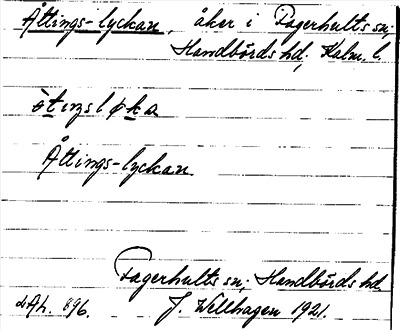 Åttings-lyckan, åker i Fagerhults sn;
Handbörds hd, Kalm. l.
òtiŋsløka
Åttings-lyckan
Fagerhults sn; Handbörds hd.
J. Willhagen 1921.